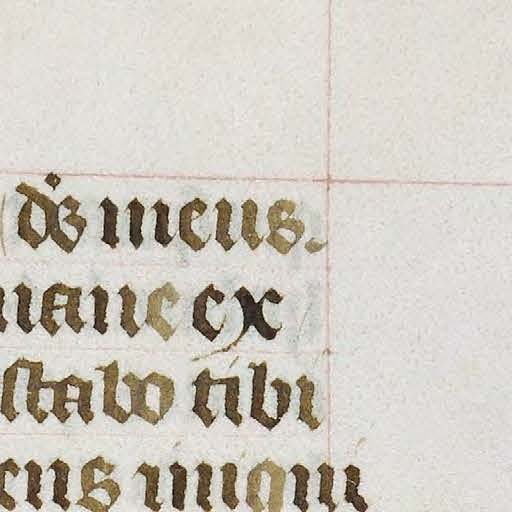 ds meus.
mane ex
stabo tibi
ens iniqui